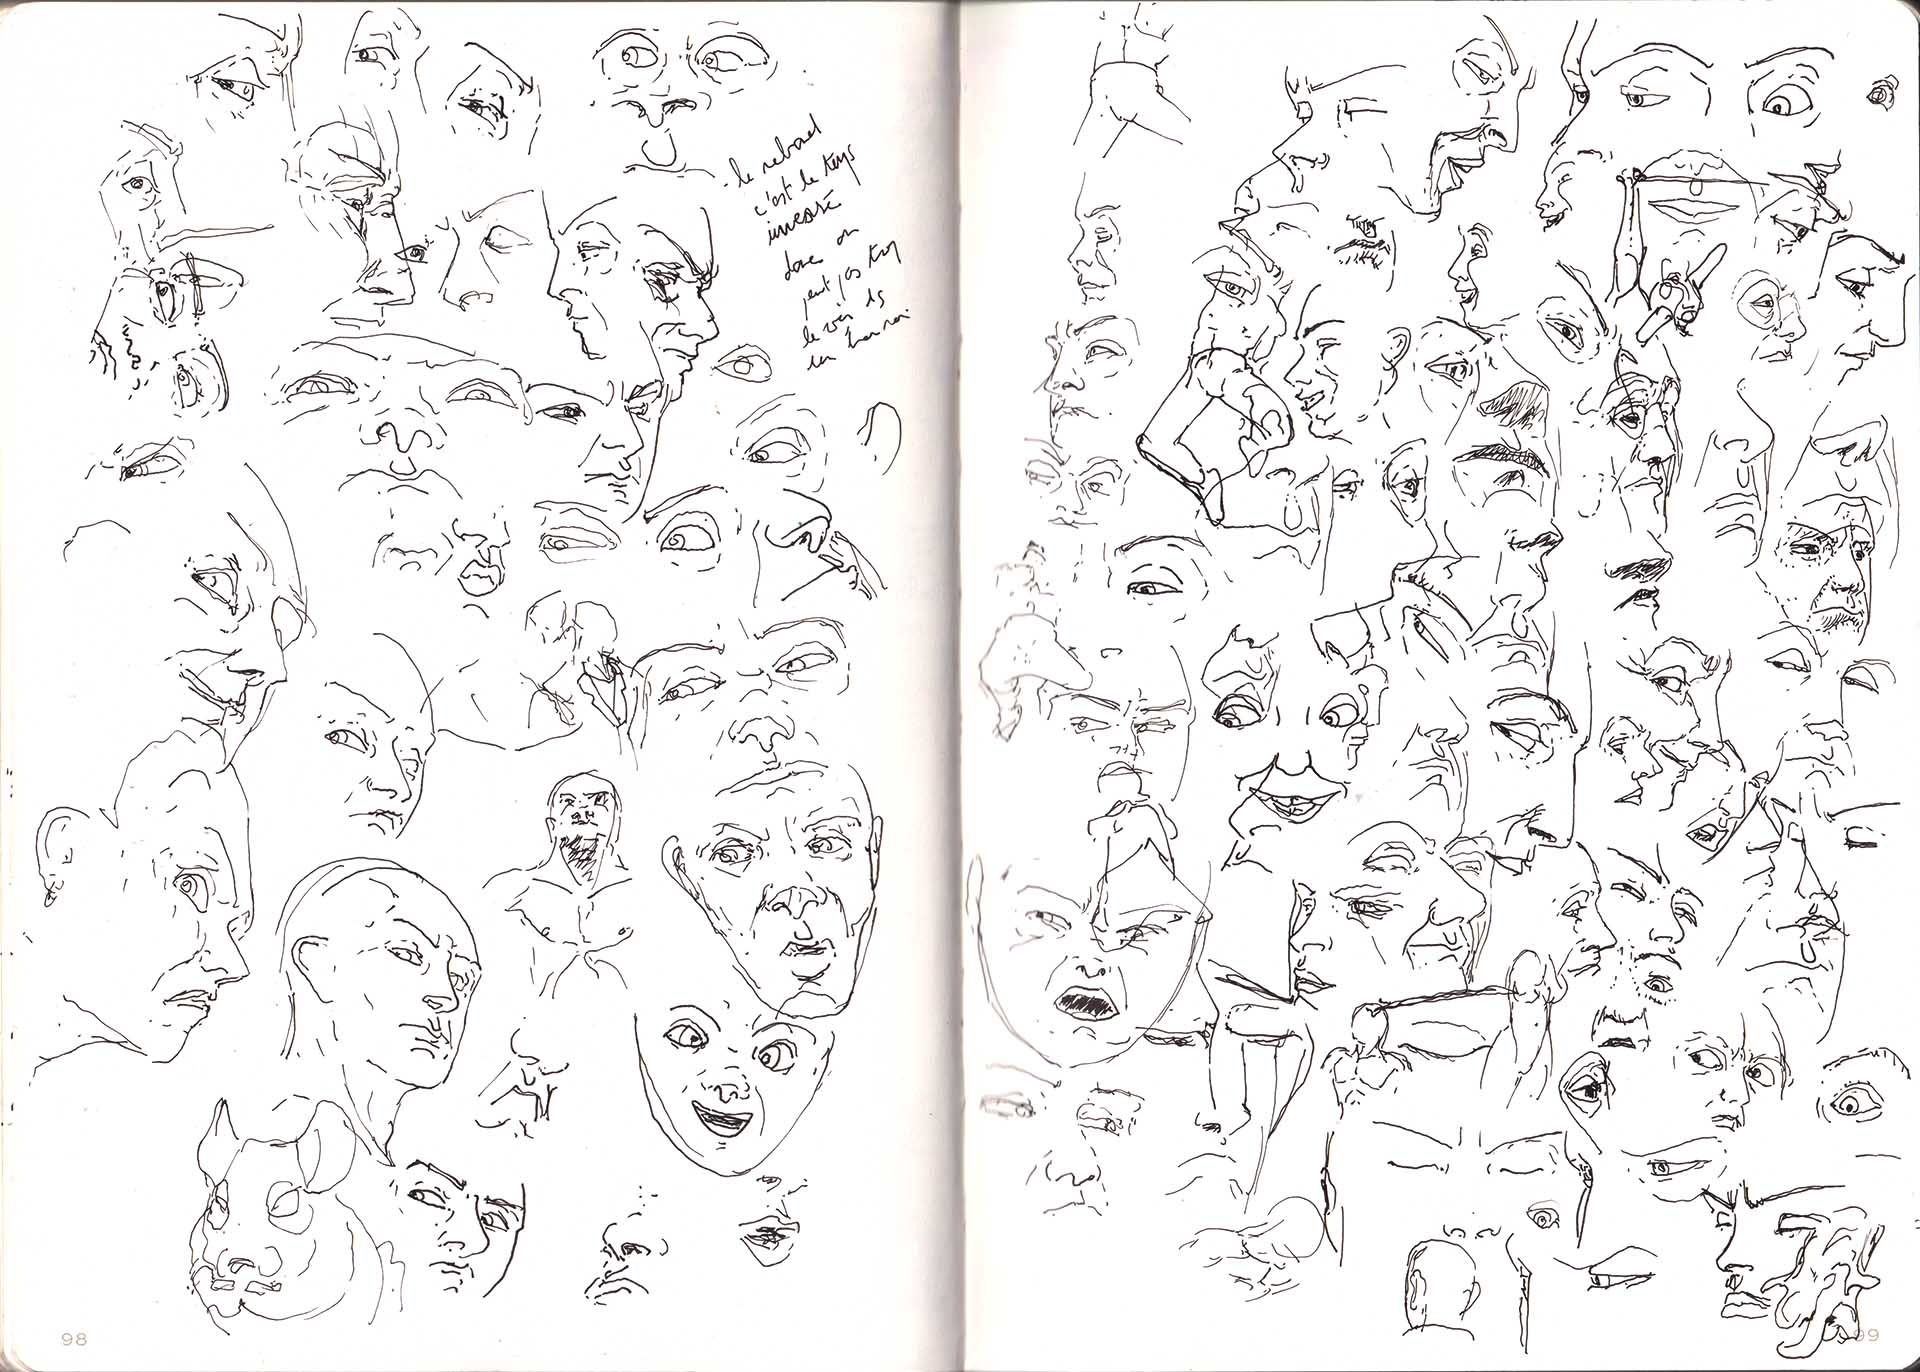 le rebond
c'est le temps
inversé
donc on
peut pas trop
le voir ds
un miroir
98
99